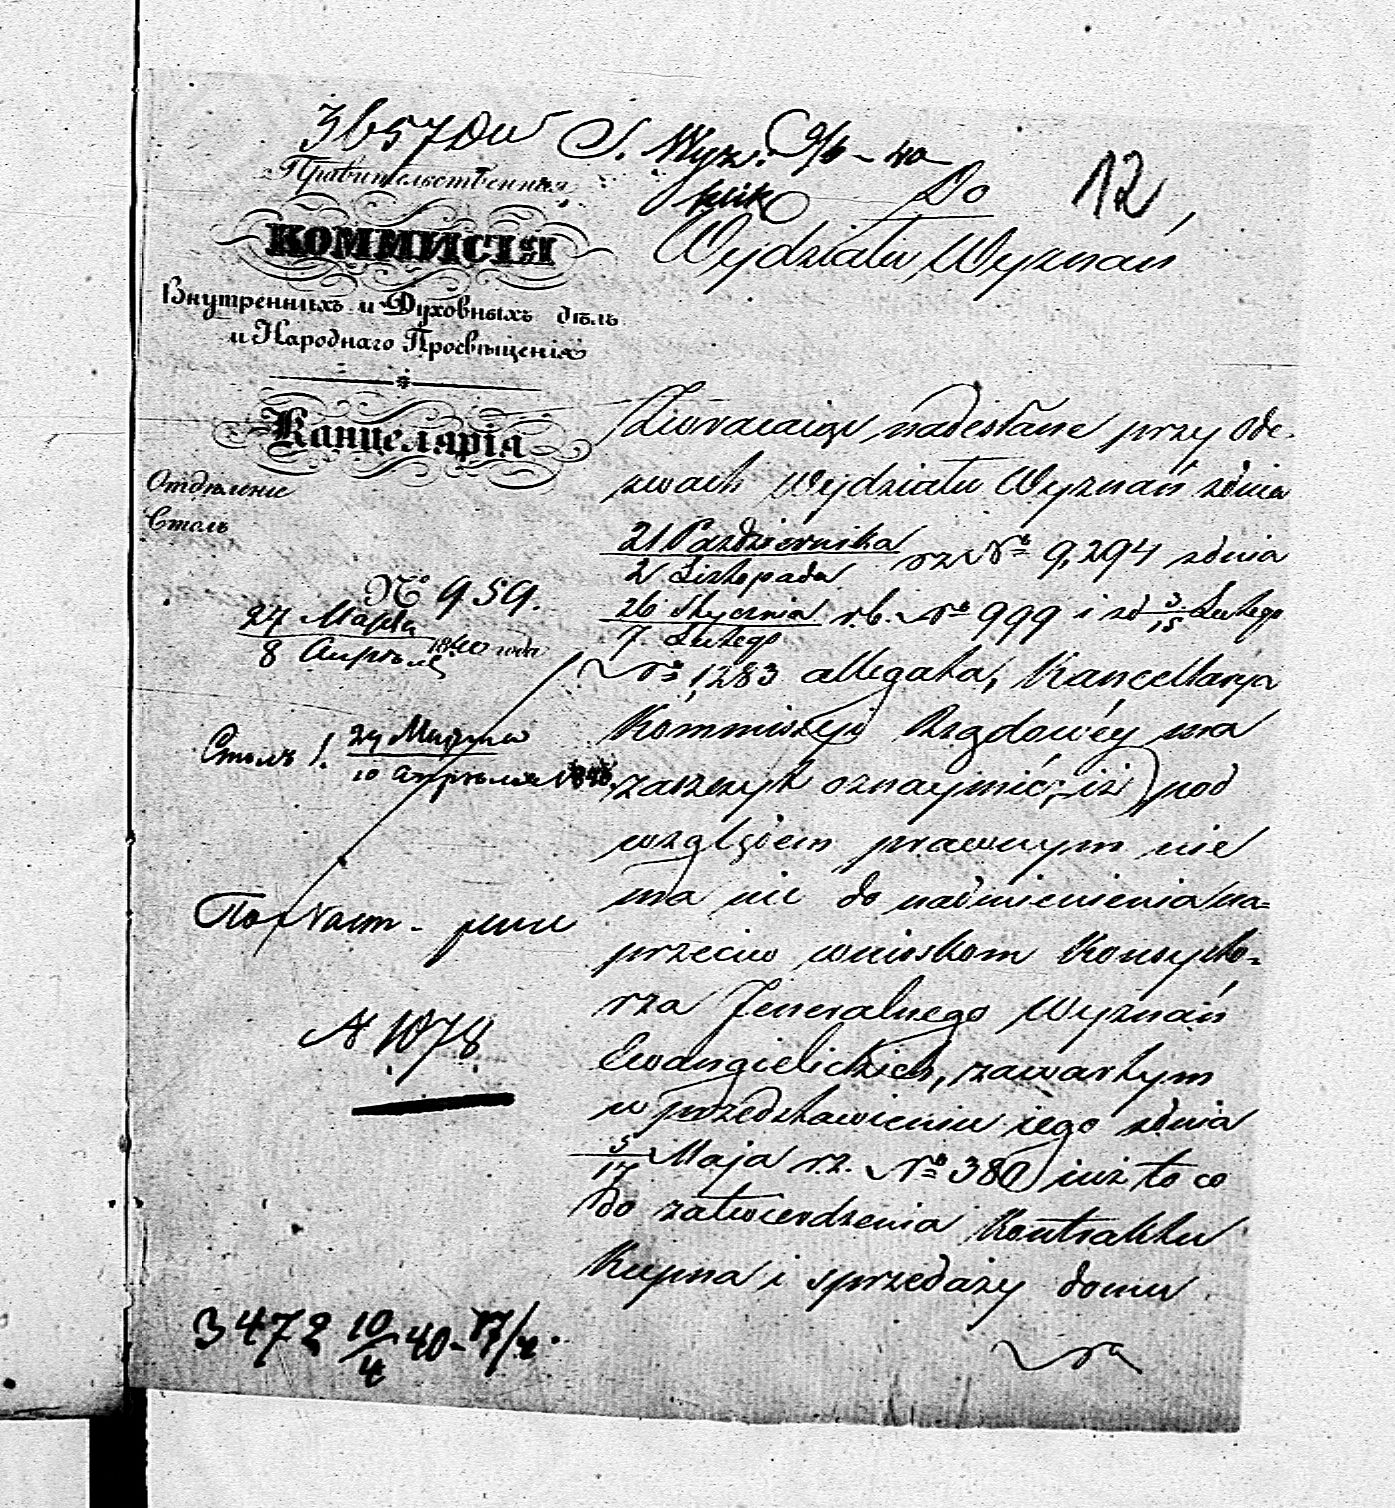 3657 Dw S. Wyzn. 9/6 - 40
12
Правительственная
КОММИСІЯ
Внутреннихъ и Духовныхъ дѣлъ
и Народнаго Просвѣщенія
Канцелярія
Отдѣленіе
Столъ
№ 959.
27 Марта
8 Апрѣля 1840 года
Столъ 1. 29 Марта
10 апрѣля 1840.
№ 1078
3472 10/4 40 - 17/4.
Do
Wydziału Wyznań
Zwracaiąc nadesłane przy Ode-
zwach Wydziału Wyznań zdnia
21 Października
2 Listopada rz. No 9,294 zdnia
26 Stycznia
7 Lutego r.b. No 999 i zd 3/15 Lutego
No 1,283 allegata, Kancellarya
Kommissyi Rządowéy ma
zaszczyt oznaymić, iż pod
względem prawnym nie
ma nic do nadmienienia na=
przeciw wnioskom Konsysto=
rza Jeneralnego Wyznań
Ewangielickich, zawartym
w przedstawieniu iego zdnia
5/17 Maja r.z. No 380 iuż to co
do zatwierdzenia Kontraktu
Kupna i sprzedaży domu